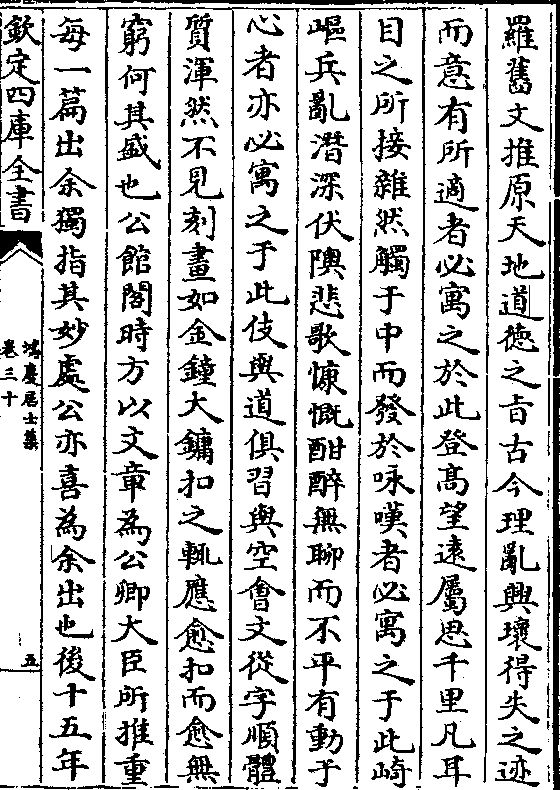 羅舊文推原天地道德之㫖古今理亂興壞得失之迹
而意有所適者必寓之於此登髙望遠屬思千里凡耳
目之所接雜然觸于中而發於咏嘆者必寓之于此崎
嶇兵亂潛深伏隩悲歌慷慨酣醉無聊而不平有動于
心者亦必寓之于此伎與道俱習與空會文從字順體
質渾然不見刻畫如金鐘大鏞扣之輒應愈扣而愈無
窮何其盛也公館閣時方以文章為公卿大臣所推重
每一篇出余獨指其妙處公亦喜為余出也後十五年
欽定四庫全書
鴻慶居士集
卷三十
五